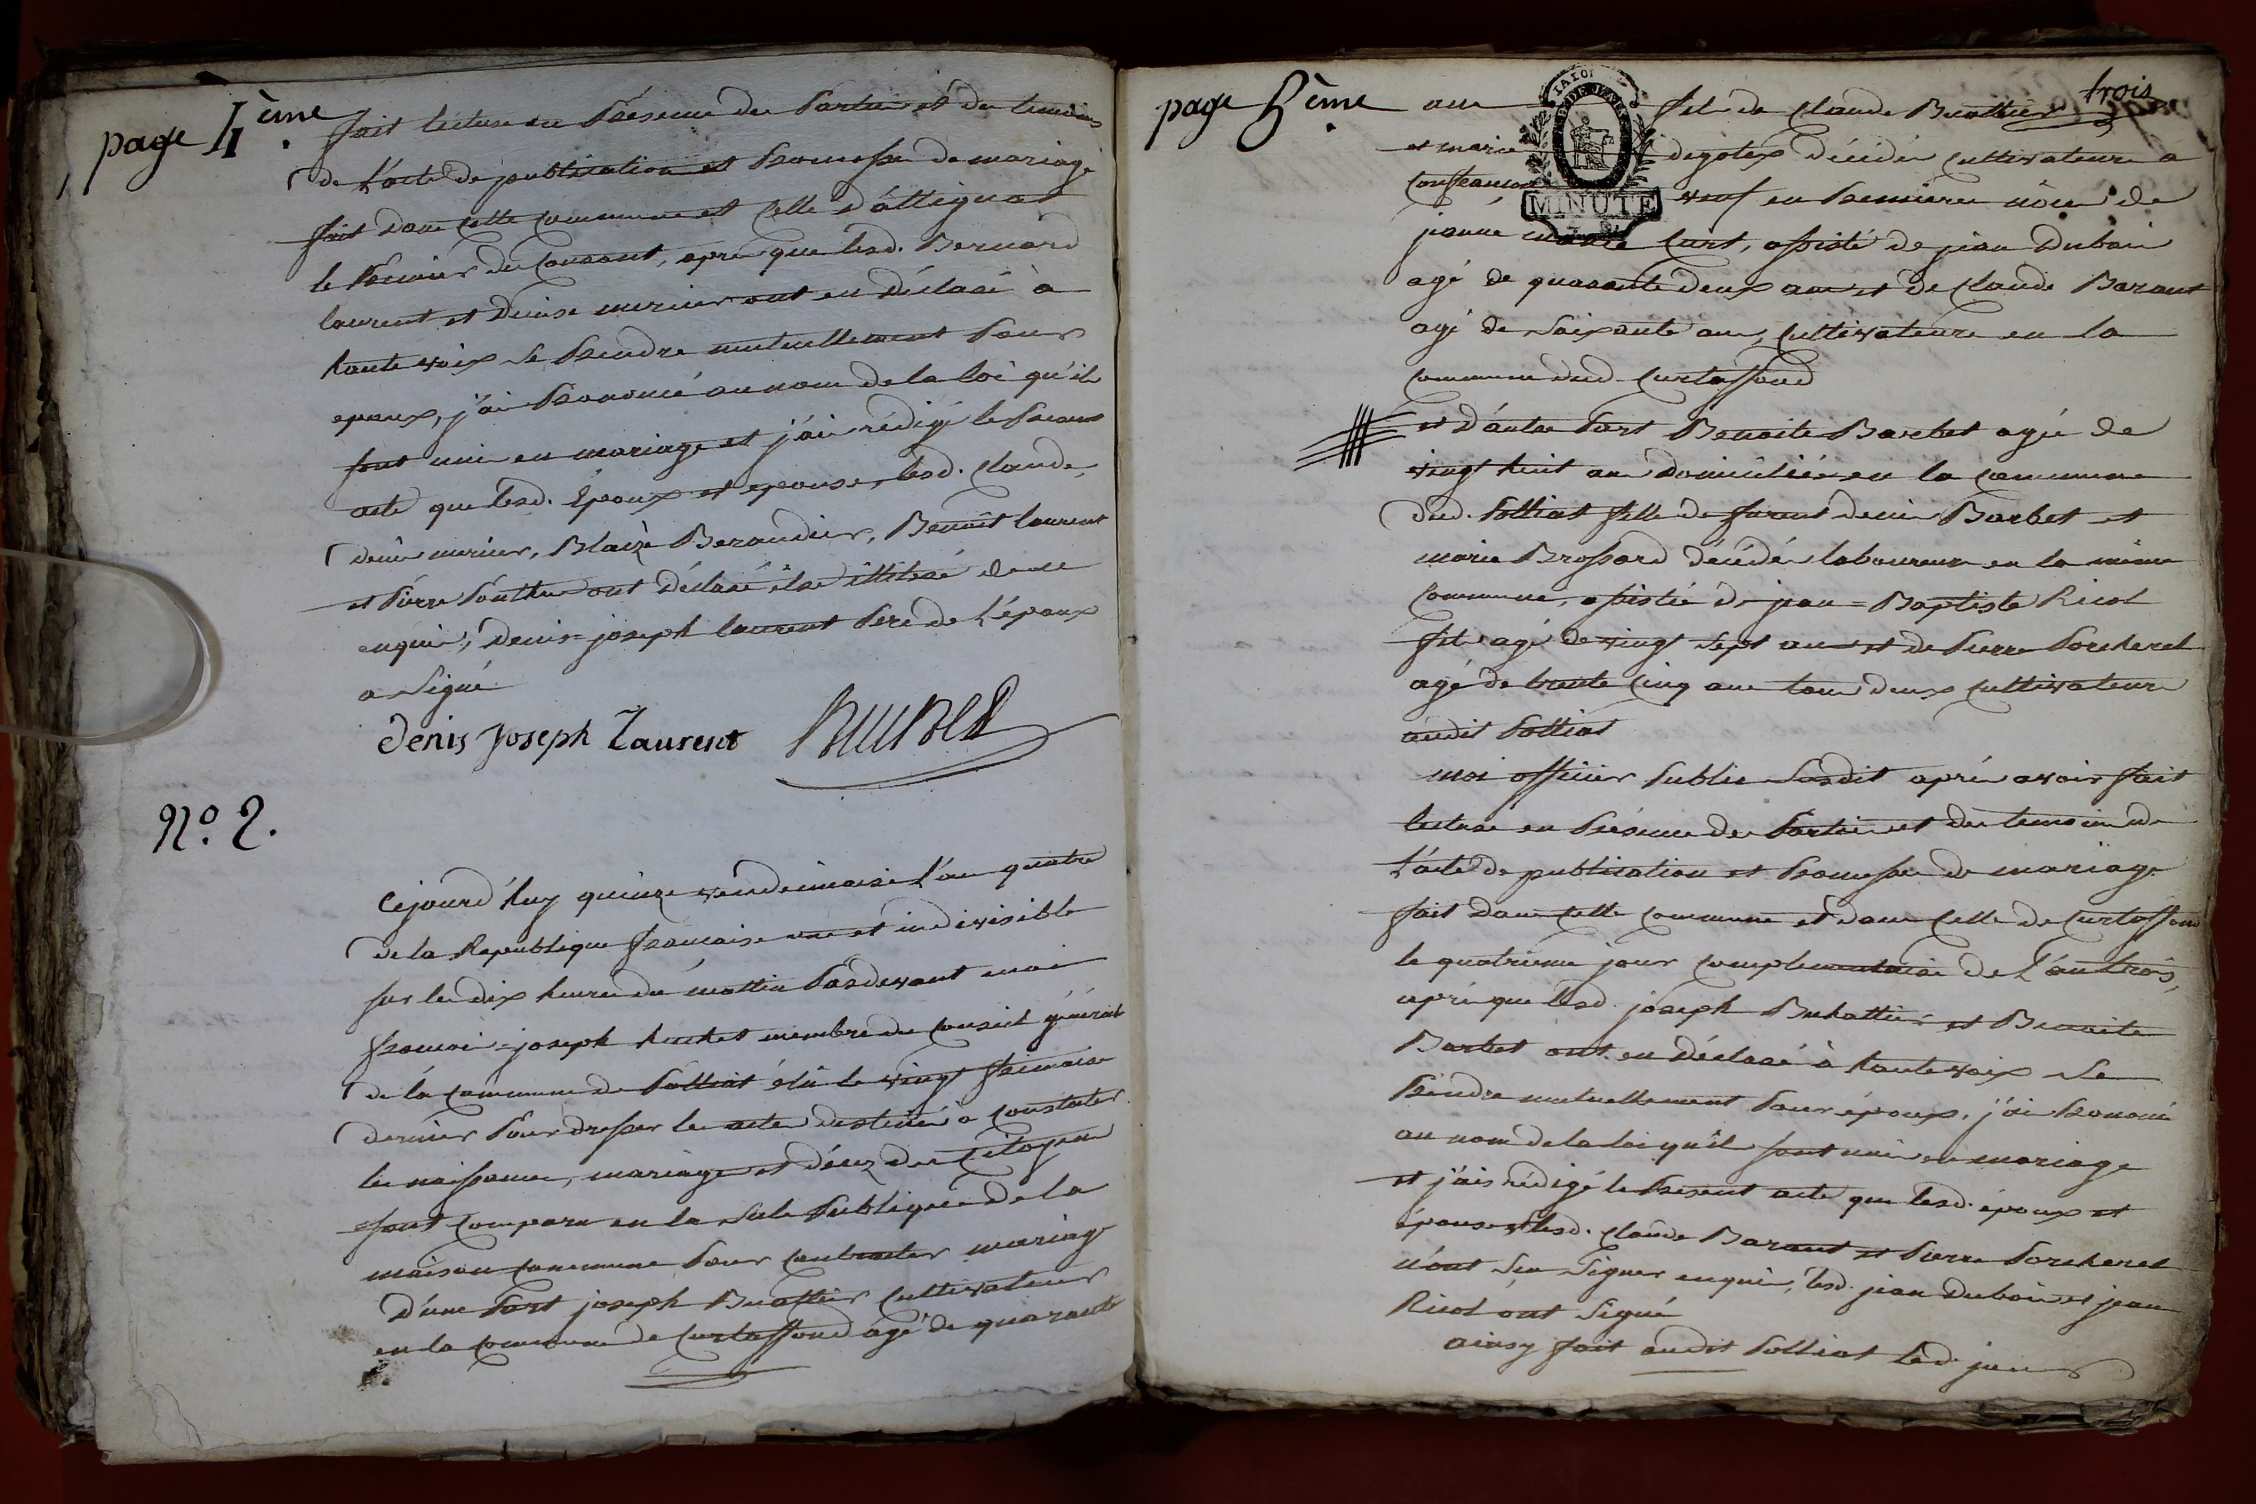 page 4ème.
fait lecture en Présence des Parties et des temoins
de l'acte de publication et Promesse de mariage
fait dans cette commune et celle d'attignat
le Premier du Courant, après que lesd. Bernard
laurent et Denise mercier ont eu Déclaré à
haute voix se Prendre mutuellement Pour
epoux, j'ai Prononcé au nom de la loi qu'ils
sont unis en mariage et j'ai rédigé le Present
acte que lesd. Époux et epouse, lesd. Claude,
denis mercier, Blaize Beraudier, Benoît laurent
et Pierre Ponthus ont Déclaré être illiteré de ce
enquis, Denis=joseph laurent Pere de l'époux
a signé
Denis Joseph Laurent
N.º 2.
Cejourd'huy quinze vendemiaire l'an quatre
de la Republique française une et indivisible
sur les dix heures du mattin Pardevant moi
françois=joseph huchet membre du Conseil général
de la Commune de Polliat élû le vingt frimaire
dernier Pour dresser les actes destinés à Constater
les naissances, mariages et décez des Citoyens
sont Comparu en la sale Publique de la
maison Commune Pour Contracter mariage
D'une Part joseph Buattier Cultivateur
en la Commune de Curtaffond agé de quarante
page 5ème
trois
ans fils de Claude Buattier
et marie degoteix décédés Cultivateurs a
Confrançon veuf en Premieres nôces de
MINUTE
jeanne marie Curt, assisté de jean Dubois
agé de quarante deux ans et de Claude Barant
agé de soixante ans, Cultivateurs en la
Commune dud. Curtaffond
et D'autre Part Benoite Barbet agée de
vingt huit ans domiciliée en la Commune
dud. Polliat fille de furent denis Barbet et
marie Brossard décédés laboureurs en la même
Commune, assistée de jean=Baptiste Ricol
fils agé de vingt sept ans et de Pierre Porcherel
agé de trente Cinq ans tous deux Cultivateurs
audit Polliat
moi officier Public susdit après avoir fait
lecture en Présence des Parties et des temoins de
l'acte de publication et Promesse de mariage
fait dans cette Commune et dans celle de Curtaffond
le quatrieme jour Complementaire de l'an trois,
après que lesd. joseph Buhattier et Benoite
Barbet ont eu Déclaré à haute voix se
Prendre mutuellement Pour époux, j'ai Prononcé
au nom de la loi qu'ils sont unis en mariage
et j'ais rédigé le Present acte que lesd. époux et
épouse et lesd. Claude Barant et Pierre Porcherel
n'ont sçu signer enquis, lesd. jean Dubois et jean
Ricol ont signé
ainsy fait audit Polliat led. jour